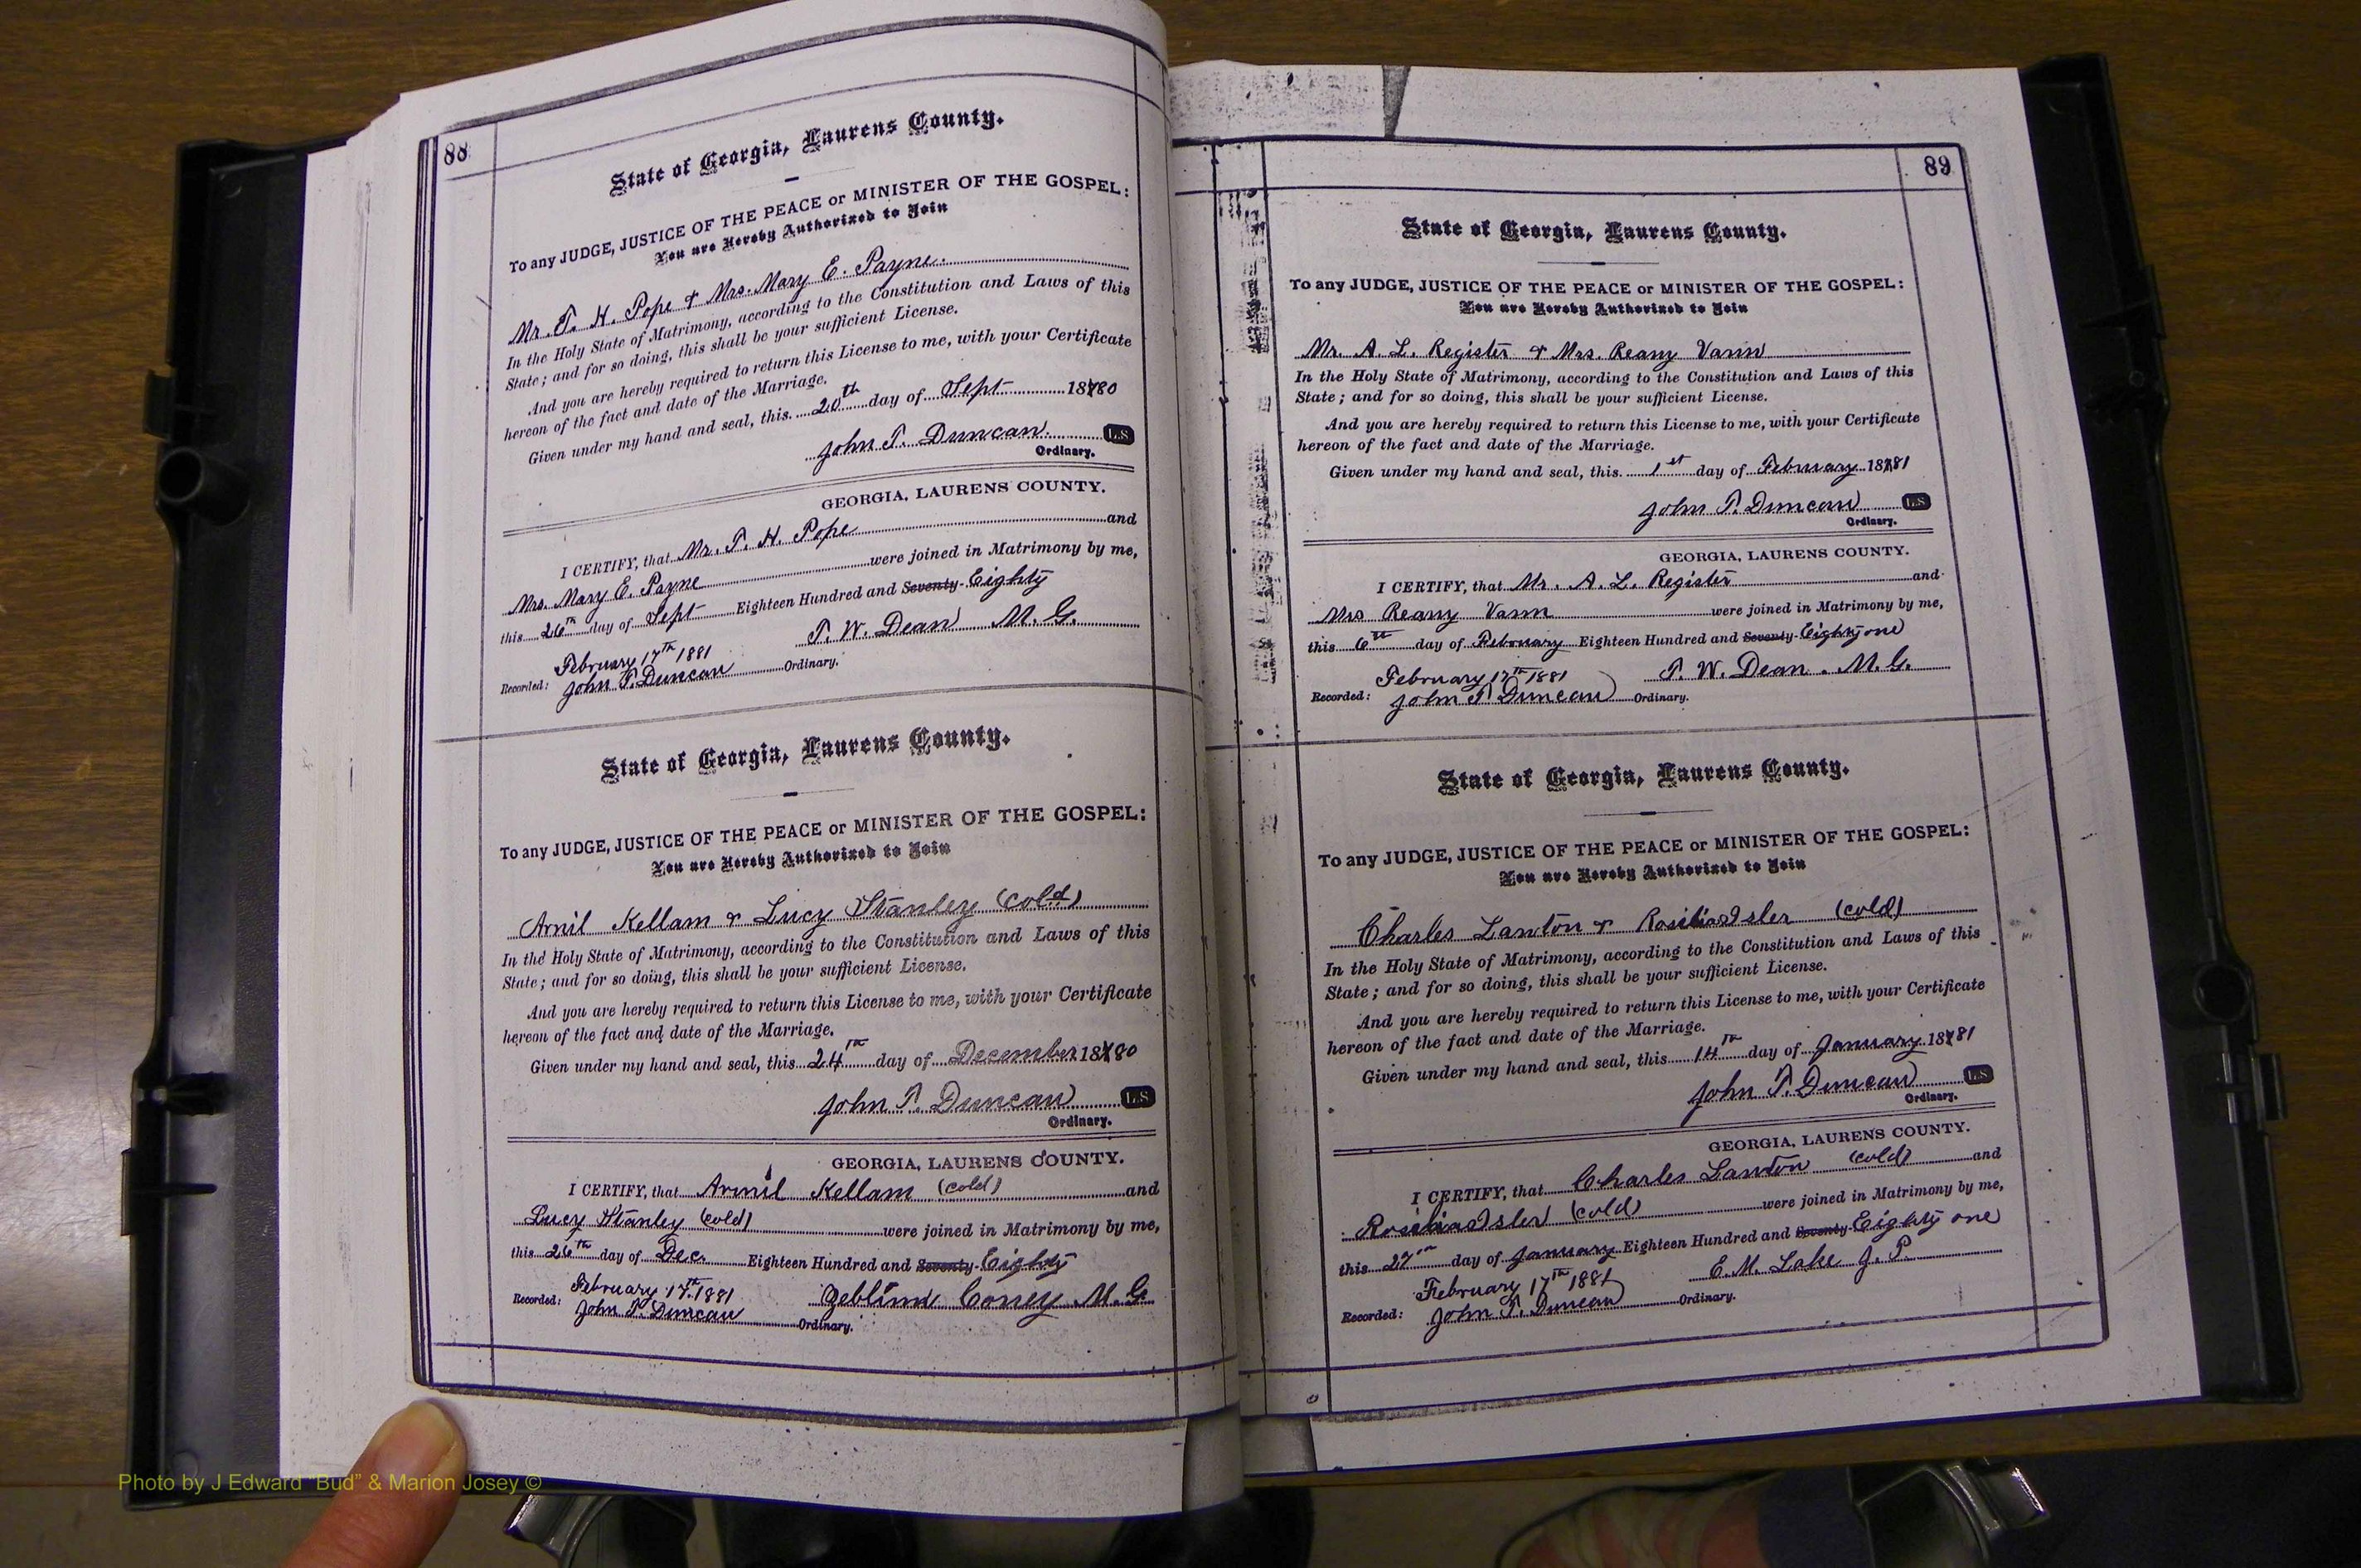 88
State of Georgia, Laurens County.
To any JUDGE, JUSTICE OF THE PEACE or MINISTER OF THE GOSPEL:
You are Hereby Authorized to Join
Mr. T. H. Pope & Mrs. Mary E. Payne.
In the Holy State of Matrimony, according to the Constitution and Laws of this
State; and for so doing, this shall be your sufficient License.
And you are hereby required to return this License to me, with your Certificate
hereon of the fact and date of the Marriage.
Given under my hand and seal, this 20th day of Sept 1880
John T. Duncan L.S
Ordinary.
GEORGIA, LAURENS COUNTY.
I CERTIFY, that Mr. T. H. Pope and
Mrs. Mary E. Payne were joined in Matrimony by me,
this 26th day of Sept Eighteen Hundred and Seventy-Eighty
T. W. Dean M.G.
February 17th 1881
Recorded: John T. Duncan Ordinary.
State of Georgia, Laurens County.
To any JUDGE, JUSTICE OF THE PEACE or MINISTER OF THE GOSPEL:
You are Hereby Authorized to Join
Arnil Kellam & Lucy Stanley (Cold)
In the Holy State of Matrimony, according to the Constitution and Laws of this
State; and for so doing, this shall be your sufficient License.
And you are hereby required to return this License to me, with your Certificate
hereon of the fact and date of the Marriage.
Given under my hand and seal, this 24th day of December 1880
John T. Duncan L.S
Ordinary.
GEORGIA, LAURENS COUNTY.
I CERTIFY, that Kellam (Cold) and
Lucy Stanley (Cold) were joined in Matrimony by me,
this 26th day of Dec. Eighteen Hundred and Seventy-Eighty
February 17th 1881 Coney M.G.
Recorded: John T. Duncan Ordinary.
89
State of Georgia, Laurens County.
To any JUDGE, JUSTICE OF THE PEACE or MINISTER OF THE GOSPEL:
You are Hereby Authorized to Join
Mr. A. L. Register & Mrs. Reany Vann
In the Holy State of Matrimony, according to the Constitution and Laws of this
State; and for so doing, this shall be your sufficient License.
And you are hereby required to return this License to me, with your Certificate
hereon of the fact and date of the Marriage.
Given under my hand and seal, this 1st day of February 1881
John T. Duncan L.S
Ordinary.
GEORGIA, LAURENS COUNTY.
I CERTIFY, that Mr. A. L. Register and
Mrs Reany Vann were joined in Matrimony by me,
this 6th day of February Eighteen Hundred and Seventy-Eighty one
February 17th 1881 T. W. Dean. M.G.
Recorded: John T. Duncan Ordinary.
State of Georgia, Laurens County.
To any JUDGE, JUSTICE OF THE PEACE or MINISTER OF THE GOSPEL:
You are Hereby Authorized to Join
Charles Lawton & (Cold)
In the Holy State of Matrimony, according to the Constitution and Laws of this
State; and for so doing, this shall be your sufficient License.
And you are hereby required to return this License to me, with your Certificate
hereon of the fact and date of the Marriage.
Given under my hand and seal, this 14th day of January 1881
John T. Duncan L.S
Ordinary.
GEORGIA, LAURENS COUNTY.
I CERTIFY, that Charles Lawton (Cold) and
(Cold) were joined in Matrimony by me,
this 27th day of January Eighteen Hundred and Seventy-Eighty one
February 17th 1881 E. M. Lake J. P.
Recorded: John T. Duncan Ordinary.
Photo by J Edward "Bud" & Marion Josey ©